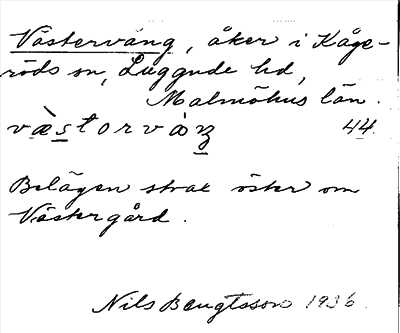 Västervång, åker i Kåge-
röds sn, Luggude hd,
Malmöhus län.
væ̀storvàŋ 44.
Belägen strax öster om
Västergård.
Nils Bengtsson 1936